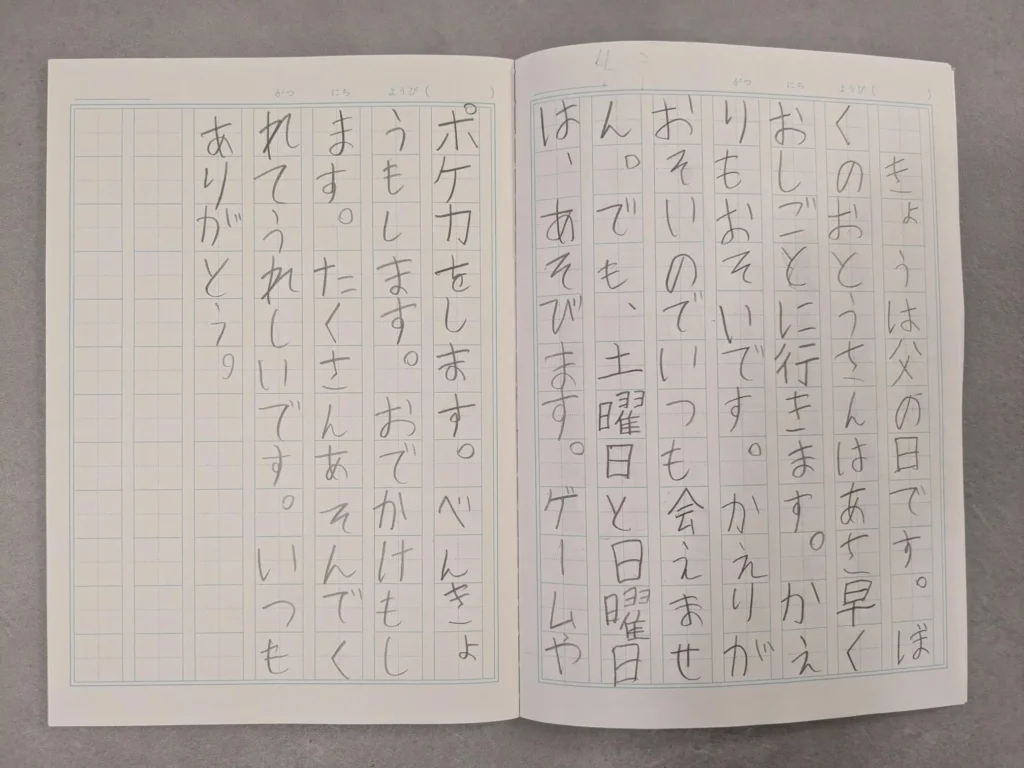 がつ にち ようび( )
きょうは父の日です。ぼ
くのおとうさんはあさ早く
おしごとに行きます。かえ
りもおそいです。かえりが
おそいのでいつも会えませ
ん。でも、土曜日と日曜日
は、あそびます。ゲームや
がつ にち ようび( )
ポケカをします。べんきょ
うもします。おでかけもし
ます。たくさんあそんでく
れてうれしいです。いつも
ありがとう。